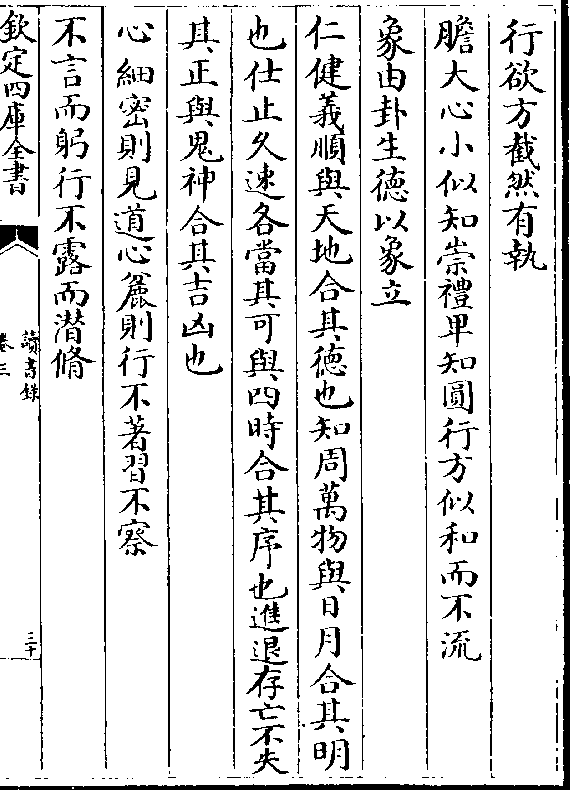 行欲方截然有執
膽大心小似知崇禮卑知圓行方似和而不流
象由卦生德以象立
仁健義順與天地合其德也知周萬物與日月合其明
也仕止久速各當其可與四時合其序也進退存亡不失
其正與鬼神合其吉凶也
心細密則見道心麄則行不著習不察
不言而躬行不露而潜脩
欽定四庫全書
讀書錄
卷三
三十